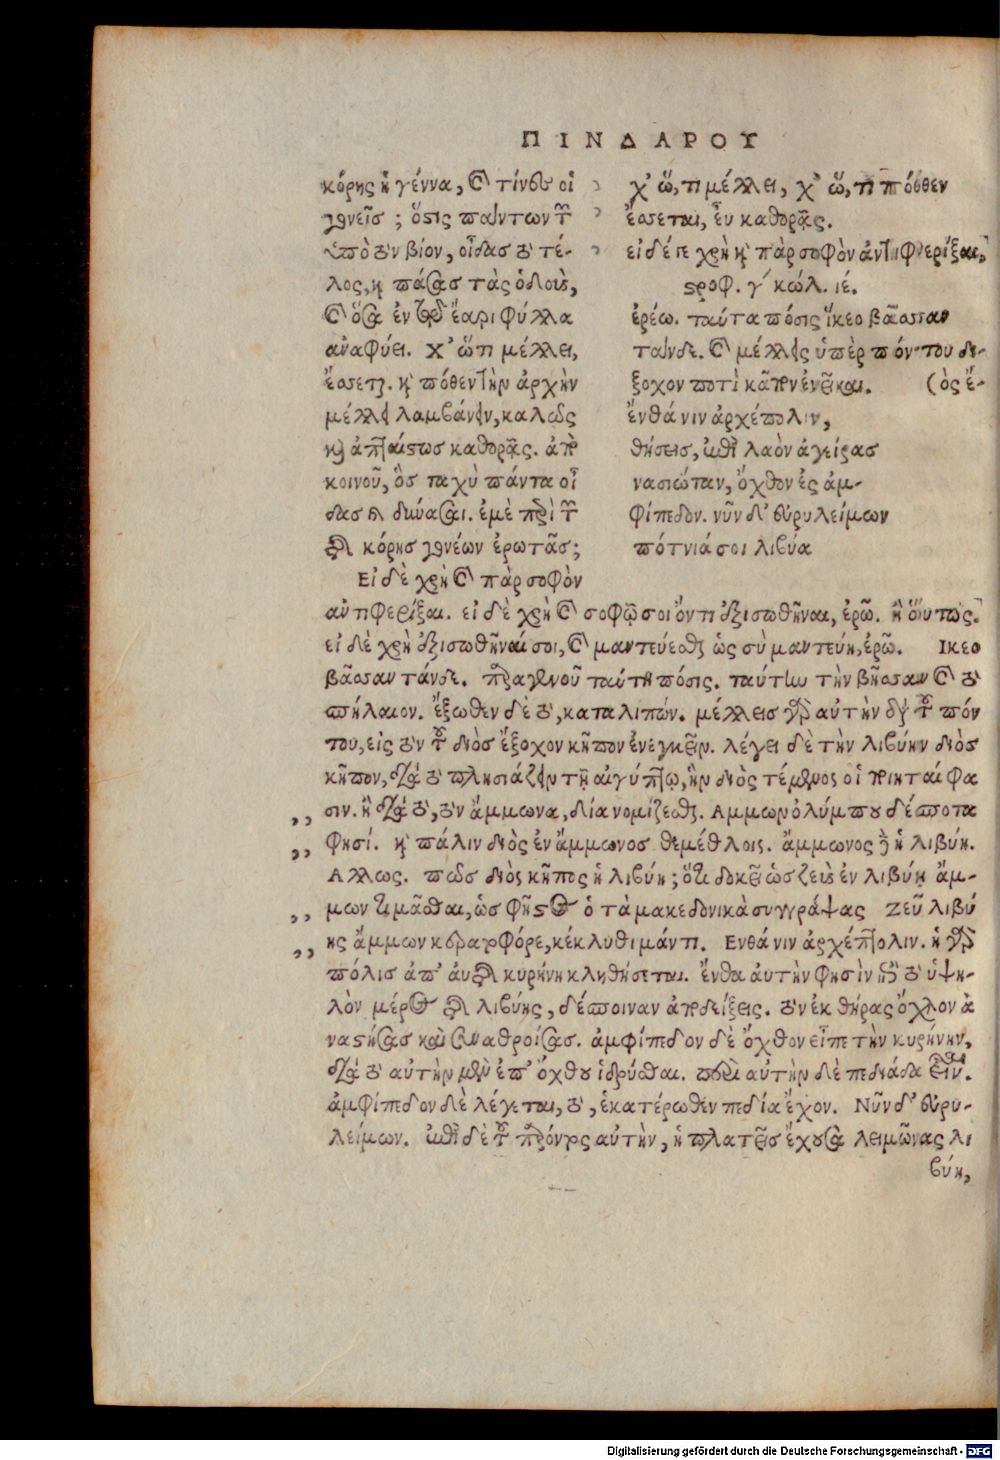 ΠΙΝΔΑΡΟΥ
κόρης ἡ γέννα, καὶ τίνων οἱ
γονεῖς ; ὅστις πάντων τὸν
λοιπὸν βίον, οἶδας τὸ τέ-
λος, καὶ πάσας τὰς ὁδοὺς,
καὶ ὅσα ἐν τῷ ἔαρι φύλλα
ἀναφύει. Χ' ὥτι μέλλει,
ἔσσεται. καὶ πόθεν τὴν ἀρχὴν
μέλλει λαμβάνειν, καλῶς
καὶ ἀπταίστως καθορᾷς. ἀπὸ
κοινοῦ, ὃς ταχὺ πάντα οἶ
δας καὶ δύνασαι. ἐμὲ περὶ τῶν
τῆς κόρης γονέων ἐρωτᾷς;
Εἰ δὲ χρὴ καὶ πὰρ σοφὸν
χ' ὥ, τι μέλλει, χ' ὥ, τι πόθεν
ἔσσεται, εὖ καθορᾷς.
εἰ δέ γε χρὴ καὶ πὰρ σοφὸν ἀντιφερίξαι,
στροφ. γ' κώλ. ιέ.
ἐρέω. ταύτα πόσις ἵκεο βᾶσσαν
τάνδε. καὶ μέλλεις ὑπὲρ πόντου δι-
ξοχον ποτὶ κᾶπον ἐνεῖκαι. (ὸς ἔ-
ἔνθά νιν ἀρχέπολιν,
θήσεις, ἐπὶ λαὸν ἀγείρας
νασιώταν, ὄχθον ἐς ἀμ-
φίπεδον. νῦν δ' εὐρυλείμων
πότνιά σοι λιβύα
αντιφερίξαι. εἰ δὲ χρὴ καὶ σοφῷ σοι ὄντι ἐξισωθῆναι, ἐρῶ. ἢ οὕτως.
εἰ δὲ χρὴ ἐξισωθῆναί σοι, καὶ μαντεύεσθαι ὡς σὺ μαντεύῃ, ἐρῶ. Ικεο
βᾶσσαν τάνδε. παραγένου ταύτῃ πόσις. ταύτην τὴν βῆσσαν καὶ τὸ
σπήλαιον. ἔξωθεν δὲ τὸ, καταλιπών. μέλλεις γὰρ αὐτὴν διὰ τοῦ πόν
του, εἰς τὸν τοῦ διὸς ἔξοχον κῆπον ἐνεγκεῖν. λέγει δὲ τὴν λιβύην διὸς
κῆπον, διὰ τὸ πλησιάζειν τῇ αἰγύπτῳ, ἣν διὸς τέμενος οἱ ποιηταί φα
σιν. ἢ διὰ τὸ, τὸν ἄμμωνα, δία νομίζεσθαι. Αμμων ὀλύμπου δέσποτα
φησί. καὶ πάλιν διὸς ἐν ἄμμωνος θεμέθλοις. ἄμμωνος γὰρ ἡ λιβύη.
Αλλως. πῶς διὸς κῆπος ἡ λιβύη; ὅτι δοκεῖ ὡς ζεὺς ἐν λιβύῃ ἄμ-
μων τιμᾶσθαι, ὡς φησὶν ὁ τὰ μακεδονικὰ συγγράψας Ζεῦ λιβύ
ης ἄμμων κερατηφόρε, κέκλυθι μάντι. Ενθά νιν ἀρχέπτολιν. ἡ γὰρ
πόλις ἀπ' αὐτῆς κυρήνη κληθήσεται. ἔνθα αὐτὴν φησὶν ἐπὶ τὸ ὑψη-
λὸν μέρος τῆς λιβύης, δέσποιναν ἀποδείξεις. τὸν ἐκ θήρας ὄχλον ἀ
ναστήσας καὶ συναθροίσας. ἀμφίπεδον δὲ ὄχθον εἶπε τὴν κυρήνην,
διὰ τὸ αὐτὴν μὲν ἐπ' ὄχθου ἱδρύσθαι. περὶ αὐτὴν δὲ πεδιάδα εἶναι.
ἀμφίπεδον δὲ λέγεται, τὸ, ἑκατέρωθεν πεδία ἔχον. Νῦν δ' εὐρυ-
λείμων. ἐπὶ δὲ τοῦ παρόντος αὐτὴν, ἡ πλατεῖς ἔχουσα λειμῶνας λι
βύη,
Digitalisierung gefördert durch die Deutsche Forschungsgemeinschaft - DFG